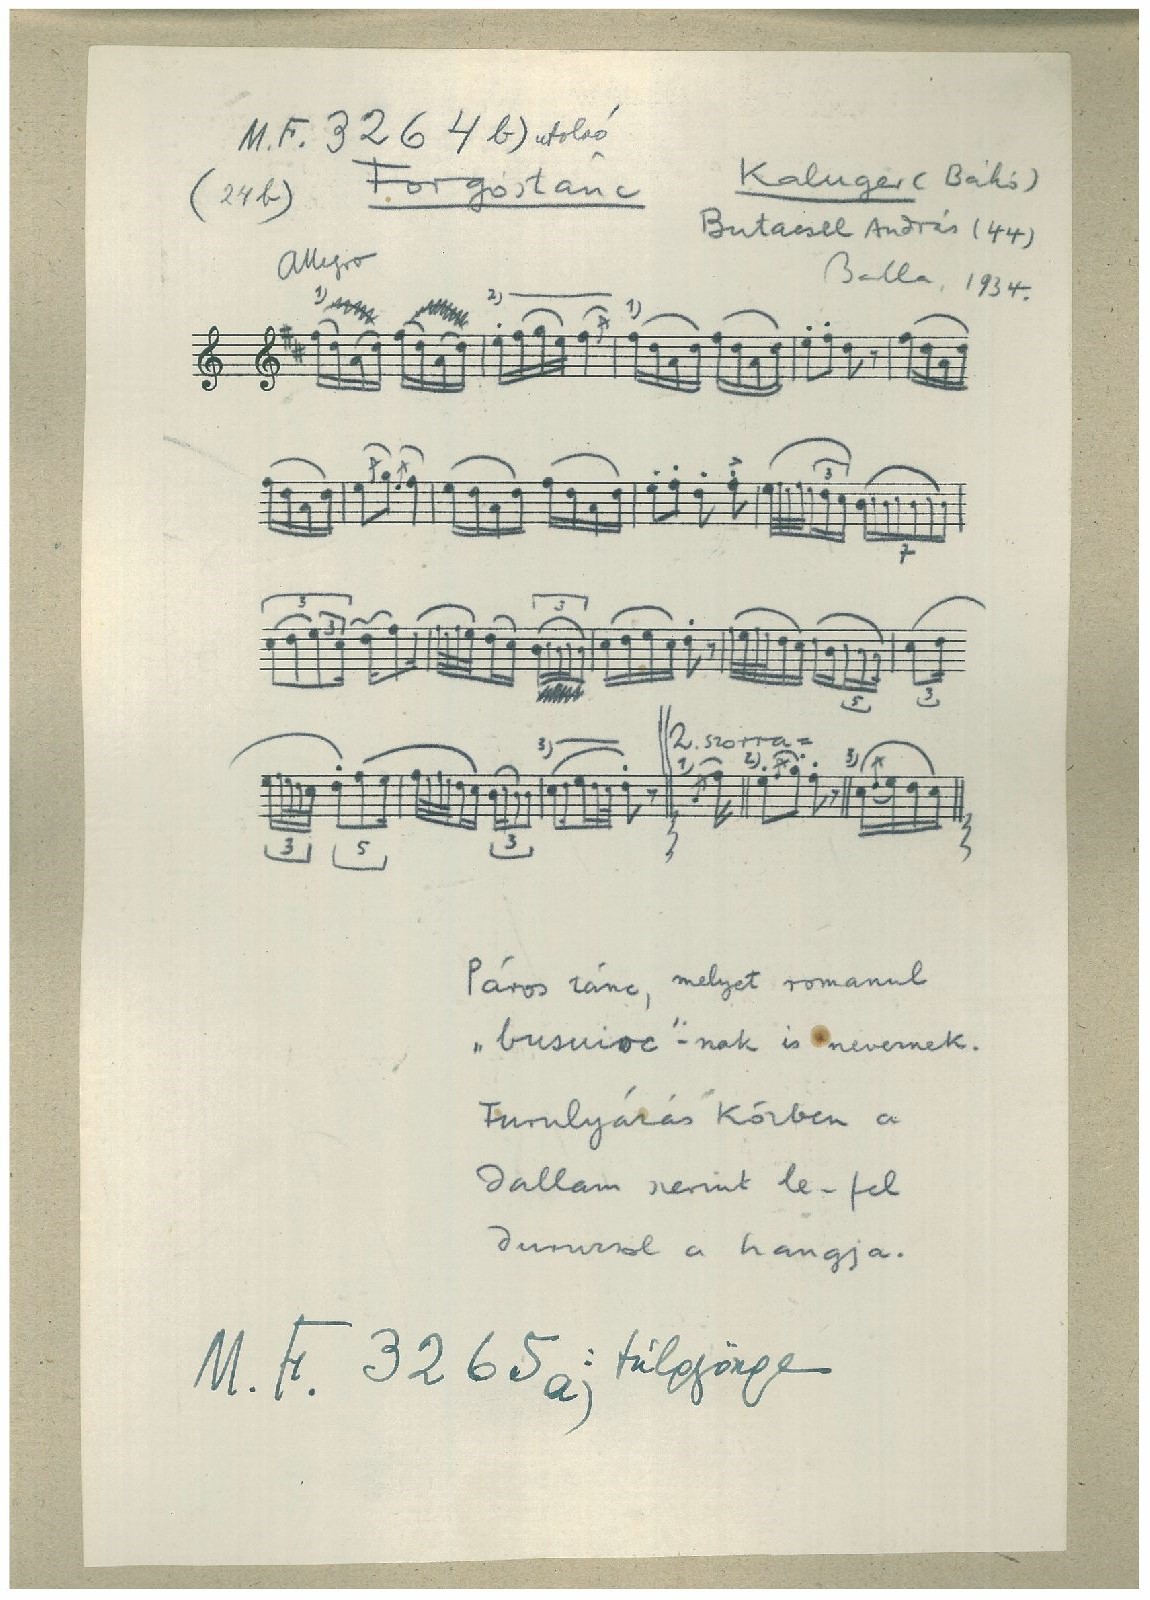 M.F. 3264 b) utolsó
(24b) Forgóstánc
Kaluger (Bákó)
Butacsel András (44)
Balla, 1934.
Allegro
1) 2) 1)
3
7
3 3 3
5 3
3) 2. szorra = 1) 2) 3)
3 5 3
Páros tánc, melyet romanul
„busuioc"-nak is neveznek.
Furulyázás közben a
dallam szerint le-fel
duruzsol a hangja.
M. F. 3265 a;